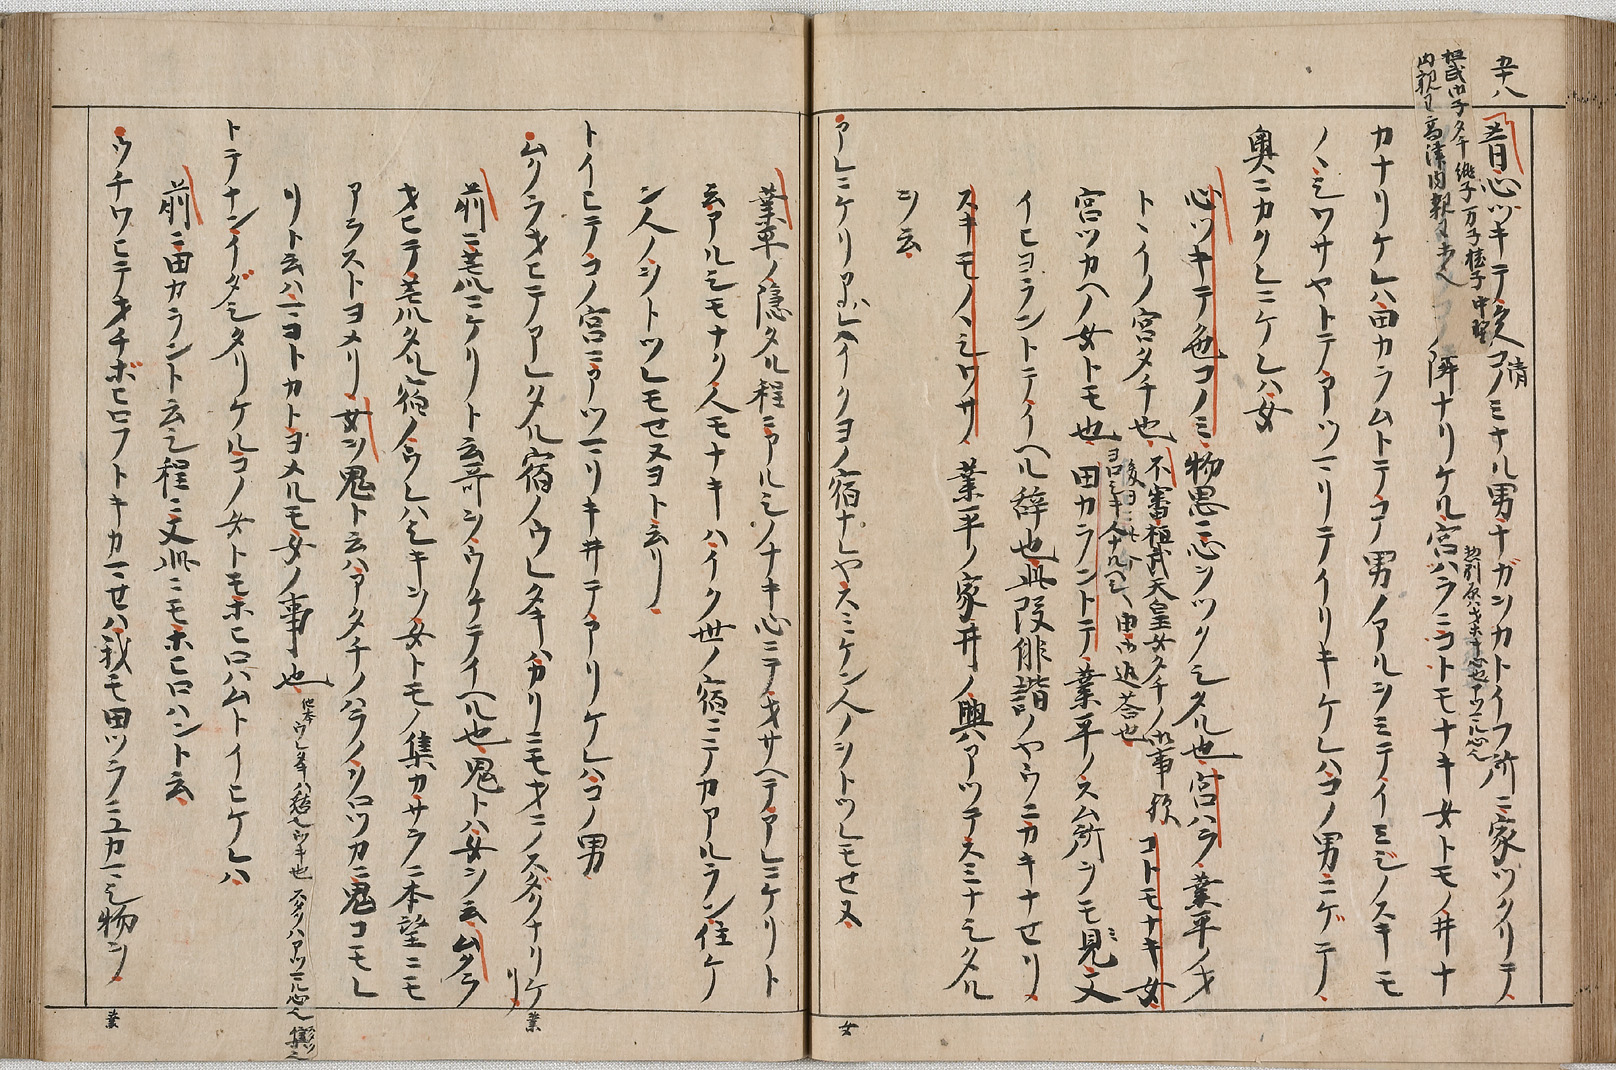 五十八
桓武御子タチ 継子 万子 桂子 中野
内親王 高津内親王ホ人
昔心ツキテ色コノミナル男ナガヲカトイフ所ニ家ツクリテ
ソコノ隣ナリケル宮ハラニコトモナキ女トモノ井ナ
カナリケレハ田カラムトテコノ男ノアルヲミテイミジノスキモ
ノヽシワサヤトテアツマリテイリキケレハコノ男ニゲテ
奥ニカクレニケレハ女
心ツキテ色コノミ 物思ニ心ヲツクシタル也 宮ハラ 業平ノオ
トイノ宮タチ也 不審桓武天皇女タチノ御事歟 コトモナキ女
宮ツカヘノ女トモ也 田カラントテ 業平ノスム所ヲモ見ミ又
イヒヨラントテイヘル辞也此段俳諧ノヤウニカキナセリ
スキモノヽシワサ 業平ノ家井ノ興アツテスミナシタル
ヲ云
アレニケリアハレイクヨノ宿ナレヤスミケン人ノヲトツレモセヌ
女
業平ノ隠タル程ニアルシノナキ心ニテオサヘテアレニケリト
云アルシモナク人モナキハイク世ノ宿ニテカアルラン住ケ
ン人ノヲトツレモセヌヨト云リ
トイヒテコノ宮ニアツマリキ井テアリケレハコノ男
ムクラオヒテアレタル宿ノウレタキハカリニモオニノスダクナリケリ
業
前ニ荒ニケリト云哥ヲウケテイヘル也 鬼トハ女ヲ云 ムクラ
オヒテ荒タル宿ノウレハシキヲ女トモノ集カサラニ本望ニモ
アラストヨメリ 女ヲ鬼ト云ハアタチノハラノクロツカニ鬼コモレ
リト云ハマコトカトヨメルモ女ノ事也
トテナンイダシタリケルコノ女トモホニロハムトイヒケレハ
前ニ田カラント云シ程ニ又此ニモホヒロハント云
ウチワヒテオチボヒロフトキカマセハ我モ田ツラニユカマシ物ヲ
業